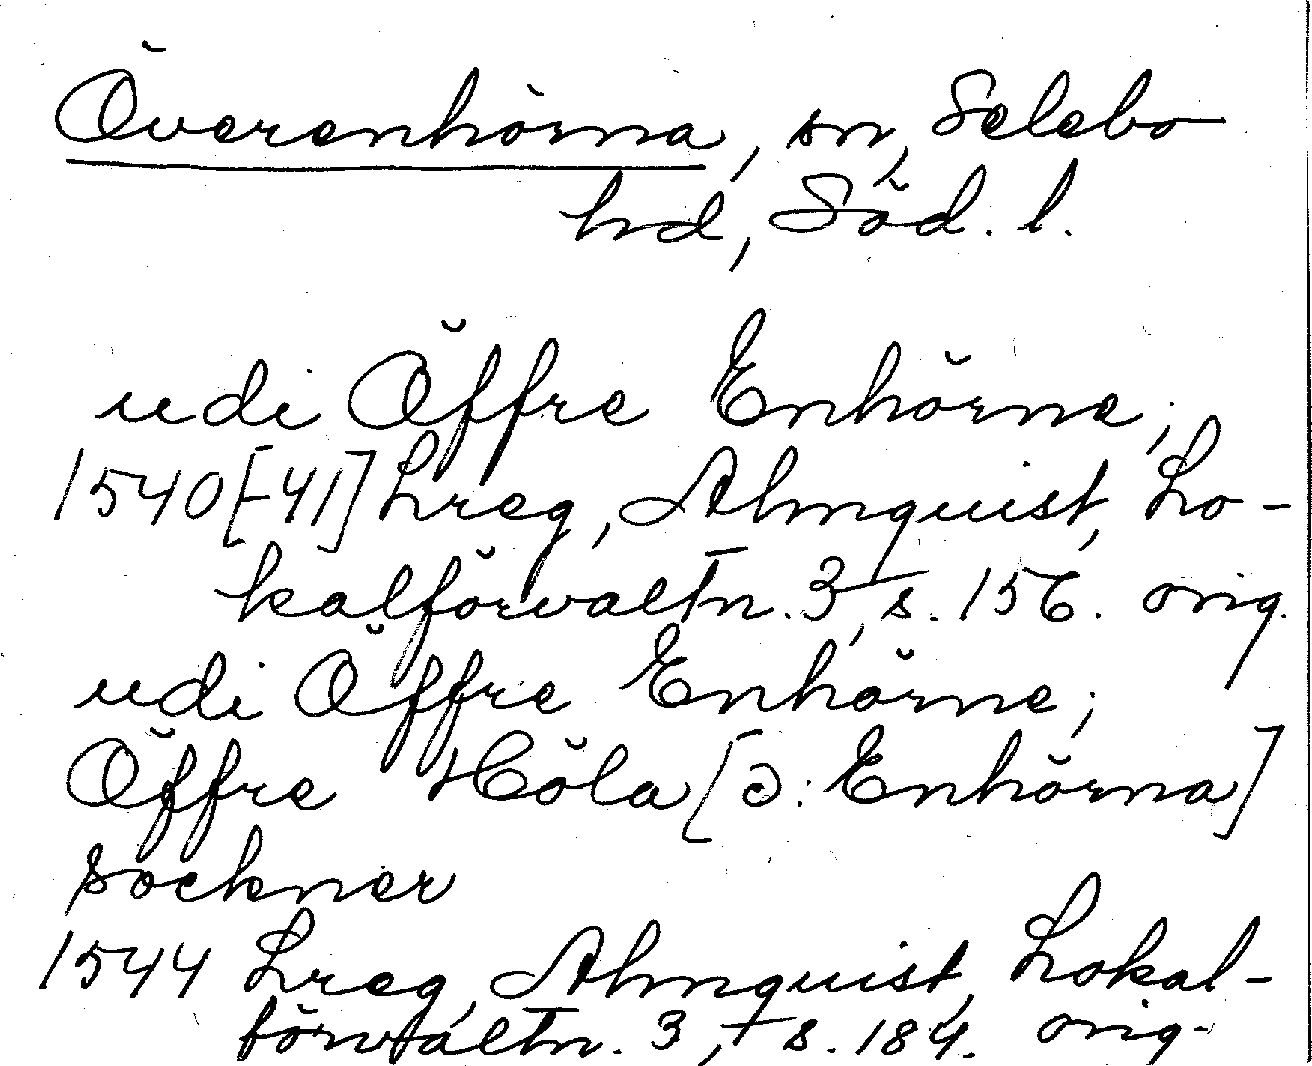 Överenhörna, sn, Selebo
hd, Söd. l.
udi Öffre Enhörne;
1540[-41] Lreg, Almquist, Lo-
kalförvaltn. 3, s. 156. orig.
udi Öffre Enhörne;
Öffre Höla [ɔ: Enhörna]
sockner
1544 Lreg, Almquist, Lokal-
förvaltn. 3, s. 184. orig.